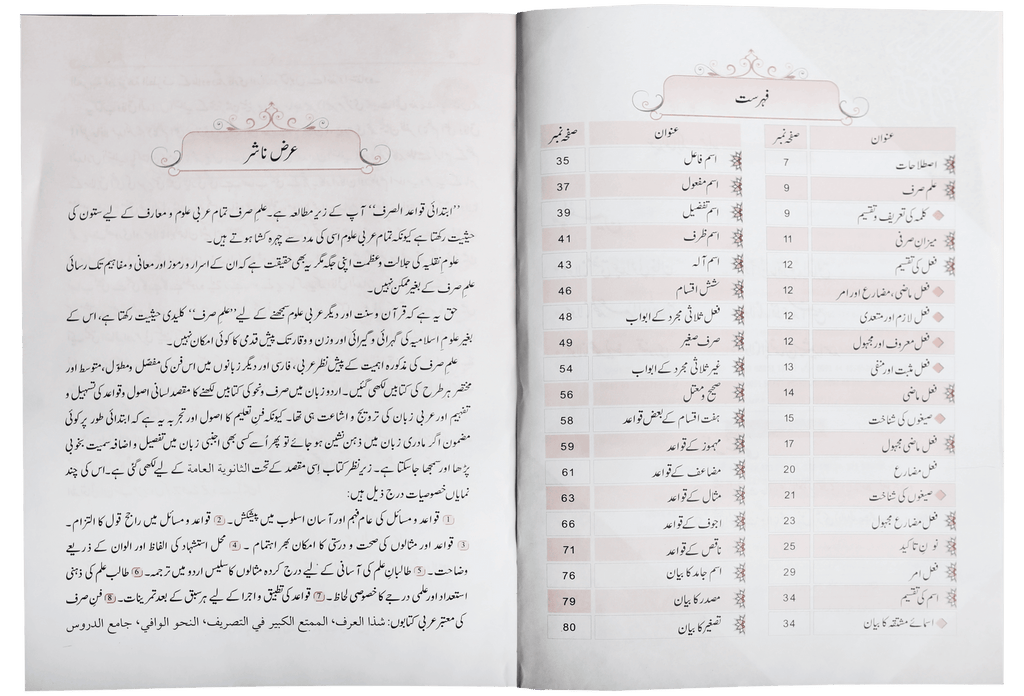 فہرست
عنوان صفحہ نمبر
اصطلاحات 7
علم صرف 9
کلمہ کی تعریف و تقسیم 9
میزان صرفی 11
فعل کی تقسیم 12
فعل ماضی، مضارع اور امر 12
فعل لازم اور متعدی 12
فعل معروف اور مجہول 12
فعل مثبت اور منفی 13
فعل ماضی 14
صیغوں کی شناخت 15
فعل ماضی مجہول 17
فعل مضارع 20
صیغوں کی شناخت 21
فعل مضارع مجہول 23
نون تاکید 25
فعل امر 29
اسم کی تقسیم 34
اسمائے مشتقہ کا بیان 34
عنوان صفحہ نمبر
اسم فاعل 35
اسم مفعول 37
اسم تفضیل 39
اسم ظرف 41
اسم آلہ 43
شش اقسام 46
فعل ثلاثی مجرد کے ابواب 48
صرف صغیر 49
غیر ثلاثی مجرد کے ابواب 54
صحیح و معتل 56
ہفت اقسام کے بعض قواعد 58
مہموز کے قواعد 59
مضاعف کے قواعد 61
مثال کے قواعد 63
اجوف کے قواعد 66
ناقص کے قواعد 71
اسم جامد کا بیان 76
مصدر کا بیان 79
تصغیر کا بیان 80
عرض ناشر
’’ابتدائی قواعد الصرف‘‘ آپ کے زیر مطالعہ ہے۔ علم صرف تمام عربی علوم و معارف کے لیے ستون کی
حیثیت رکھتا ہے کیونکہ تمام عربی علوم اسی کی مدد سے چہرہ کشا ہوتے ہیں۔
علوم نقلیہ کی جلالت و عظمت اپنی جگہ مگر یہ بھی حقیقت ہے کہ ان کے اسرار و رموز اور معانی و مفاہیم تک رسائی
علم صرف کے بغیر ممکن نہیں۔
حق یہ ہے کہ قرآن و سنت اور دیگر عربی علوم سمجھنے کے لیے ’’علم صرف‘‘ کلیدی حیثیت رکھتا ہے، اس کے
بغیر علوم اسلامیہ کی گہرائی و گیرائی اور وزن و وقار تک پیش قدمی کا کوئی امکان نہیں۔
علم صرف کی مذکورہ اہمیت کے پیش نظر عربی، فارسی اور دیگر زبانوں میں اس فن کی مفصل و مطوّل، متوسط اور
مختصر ہر طرح کی کتابیں لکھی گئیں۔ اردو زبان میں صرف و نحو کی کتابیں لکھنے کا مقصد لسانی اصول و قواعد کی تسہیل و
تفہیم اور عربی زبان کی ترویج و اشاعت ہی تھا۔ کیونکہ فن تعلیم کا اصول اور تجربہ یہ ہے کہ ابتدائی طور پر کوئی
مضمون اگر مادری زبان میں ذہن نشین ہو جائے تو پھر اُسے کسی بھی اجنبی زبان میں تفصیل و اضافہ سمیت بخوبی
پڑھا اور سمجھا جا سکتا ہے۔ زیر نظر کتاب اِسی مقصد کے تحت الثانوية العامة کے لیے لکھی گئی ہے۔ اس کی چند
نمایاں خصوصیات درج ذیل ہیں:
① قواعد و مسائل کی عام فہم اور آسان اسلوب میں پیشکش۔ ② قواعد و مسائل میں راجح قول کا التزام۔
③ قواعد اور مثالوں کی صحت و درستی کا امکان بھر اہتمام۔ ④ محل استشہاد کی الفاظ اور الوان کے ذریعے
وضاحت۔ ⑤ طالبانِ علم کی آسانی کے لیے درج کردہ مثالوں کا سلیس اردو میں ترجمہ۔ ⑥ طالب علم کی ذہنی
استعداد اور علمی درجے کا خصوصی لحاظ۔ ⑦ قواعد کی تطبیق و اجرا کے لیے ہر سبق کے بعد تمرینات۔ ⑧ فن صرف
کی معتبر عربی کتابوں: شذا العرف، الممتع الكبير في التصريف، النحو الوافي، جامع الدروس